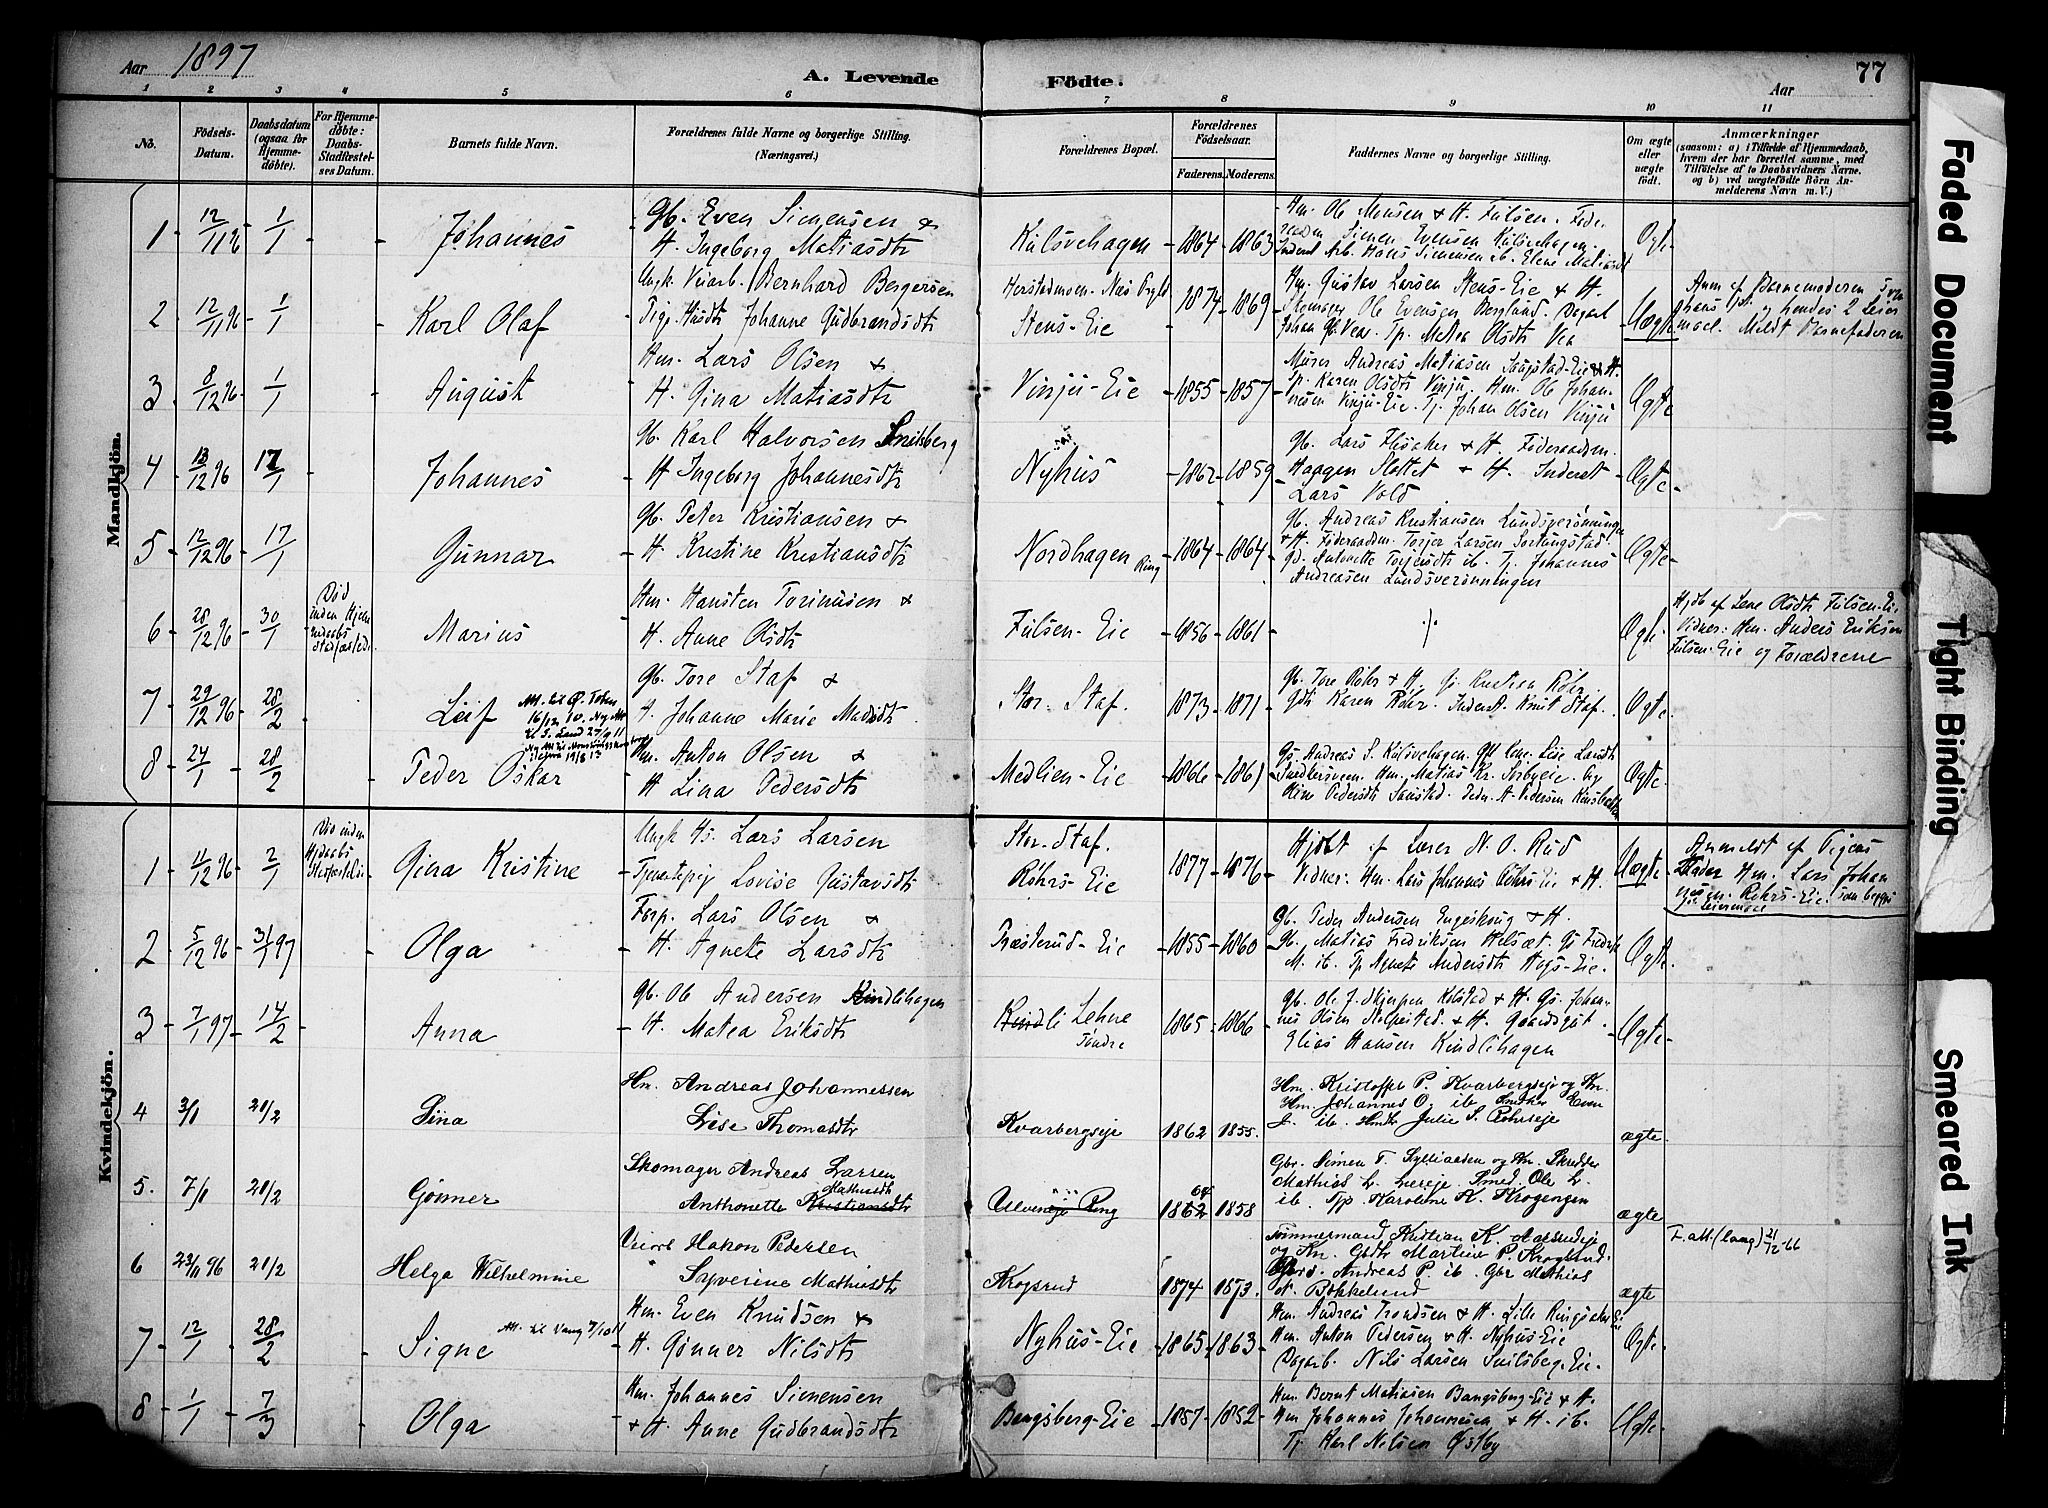 Aar 1897
A. Levende Födte.
Aar
77
1 2 3 4 5 6 7 8 9 10 11
No.
Födsels-Datum.
Daabsdatum (ogsaa for Hjemme-döbte).
For Hjemme-döbte: Daabs-Stadfæstelses Datum.
Barnets fulde Navn.
Forældrenes fulde Navne og borgerlige Stilling. (Næringsvei.)
Forældrenes Bopæl.
Forældrenes Födselsaar.
Faderens. Moderens.
Faddernes Navne og borgerlige Stilling.
Om ægte eller uægte födt.
Anmærkninger
(saasom: a) i Tilfælde af Hjemmedaab,
hvem der har forrettet samme, med
Tilföielse af to Daabsvidners Navne.
og b) ved uægtefödte Börn An-
melderens Navn m. V.)
Mandkjön.
1 12/11 96 1/1 Johannes
Gb. Even Simensen &
H. Ingeborg Matiasdtr
Kulsvehagen 1864 1863
Hm. Ole Monsen & H. Fulsen.
Simen Evensen Kulsvehagen.
Hans Simensen ib. Elene Matiasdt
Ægte
2 12/11 96 1/1 Karl Olaf
Ungk. Veiarb. Bernhard Bergersen
Pige Husdt Johanne Gudbrandsdtr
Stens-Eie
1874 1869
Hm. Gustav Larsen Stens-Eie & H.
Skomager Ole Evensen Berglund. Dagarb
Johan Gb. Vea. Tp. Matea Olsdtr Vea
Uægte
Anm af Barnemoderen
hans 1ste og hendes 2 Leier
maal. Meldt Barnefaderen
3 8/12 96 1/1 August
Hm. Lars Olsen &
H. Gina Matiasdtr
Vinju-Eie 1855 1857
Murer Andreas Matiasen Saugstad-Eie & H.
Tp. Karen Olsdtr Vinju. Hm. Ole Johan-
nesen Vinju-Eie. Tj. Johan Olsen Vinju
Ægte
4 13/12 96 17/1 Johannes
Gb. Karl Halvorsen Snilsberg
H. Ingeborg Johannesdtr
Nyhus 1862 1859
Gb. Lars & H. Föderaadsm.
Haagen Slottet & H. Inderst
Lars Vold
Ægte
5 12/12 96 17/1 Gunnar
Gb. Peter Kristiansen &
H. Kristine Kristiansdtr
Nordhagen Ring 1864 1864
Gb. Andreas Kristiansen Lundsverönningen
& H. Föderaadsm. Torjer Larsen
Antonette Torjersdtr ib. Tj. Johannes
Andreasen Lundsverönningen
Ægte
6 28/12 96 30/1
Död inden Hjemmedaabs Stadfæstelse
Marius
Hm. Hansten Torinusen &
H. Anne Olsdtr
Fulsen-Eie 1856 1861
Ægte
Hjdb af Lene Olsdtr Fulsen-Eie
Vidner: Hm. Anders Eriksen
Fulsen-Eie og Forældrene
7 29/12 96 28/2 Leif
Att. til
16/12 10. Ny Att
til S. Land 27/9 11
Gb. Tore Staf &
H. Johanne Marie Madsdtr
Stor-Staf 1873 1871
Gb. Tore Röhr & H. Gs. Kristian Röhr
Gdt. Karen Röhr. Inderst. Knut Staf.
Ægte
8 24/1 28/2 Peder Oskar
Hm. Anton Olsen &
H. Lina Pedersdtr
Medlien-Eie 1866 1861
Gs. Andreas S. Kulsvehagen.
Hm. Matias Kr.
Oline Pedersdtr
Ægte
Kvindekjön.
1 11/12 96 2/1
Död inden Hjdaabs Stadfæstelsen
Gina Kristine
Ungk Hs. Lars Larsen
Tjenestepig Lovise Gustavsdtr
Stor-Staf.
Röhrs-Eie
1877 1876
Hjdbt af Lærer N. O. Rud
Vidner: Hm. Lars Johannes Röhrs-Eie & H.
Uægte
Anmeldt af Pigens
Fader Hm. Lars Johan
nesen Röhrs-Eie. som begges
1ste Leiermaal
2 5/12 96 31/1 97 Olga
Forp. Lars Olsen &
H. Agnete Larsdtr
Præsterud-Eie 1855 1860
Gb. Peder Andersen Engeskoug & H.
Gb. Matias Fredriksen Helset. Gs Fredrik
M. ib. Tp Agnete Andersdtr Hags-Eie.
Ægte
3 7/1 97 14/2 Anna
Gb. Ole Andersen Kindlihagen
H. Matea Eriksdtr
Kindli Lehne
Söndre
1865 1866
Gb. Ole J. Skjerpen Kolstad & H. Gs. Johan-
nes Olsen & H. Gaardsgut
Elias Hansen Kindlihagen
Ægte
4 3/1 21/2 Sina
Hm. Andreas Johannessen
Lise Thomasdtr
Kvarbergseje 1862 1855.
Hm. Kristoffer P. Kvarbergseje og Kn.
Hm. Johannes O. ib. Smeker Even
J. ib. Hmdtr Julie S. Röhrseje
ægte
5. 7/1 21/2 Gönner
Skomager Andreas Larsen
Anthonette Kristiansdtr Mathiasdt
Ring 1862 64 1858
Gbr. Simen T. og Kn. Skredder
Mathias L. Smed. Ole L.
ib. Tpp Karoline K. Krogengen
ægte
6 23/11 96 21/2 Helga Wilhelmine
Veiarb Hakon Pedersen
" Severine Mathiasdtr
Krogsrud 1874 1873.
Tömmermand Kristian K.
og Kn. Gbdtr Martine P. Kroglund
Andreas P. ib. Gbr Mathias
N. Böhkelund
ægte
F. att. (laag) 21/12-66
7 12/1 28/2 Signe
Att. til Vang 7/10 11
Hm. Even Knudsen &
H. Gönner Nilsdtr
Nyhus-Eie 1865 1863
Hm. Andreas Trondsen & H. Lille Ringsaker Eie
Hm. Anton Pedersen & H. Nyhus-Eie
Dagarb. Nils Larsen Snilsberg-Eie.
Ægte
8 1/1 7/3 Olga
Hm. Johannes Simensen
& H. Anne Gudbrandsdtr
Bangsberg-Eie 1857 1852
Hm. Bernt Matiasen Bangsberg-Eie & H.
Hm Johannes Johannesen & H. ib.
Tj Karl Nilsen Østby
Ægte
Faded Document
Tight Binding
Smeared Ink